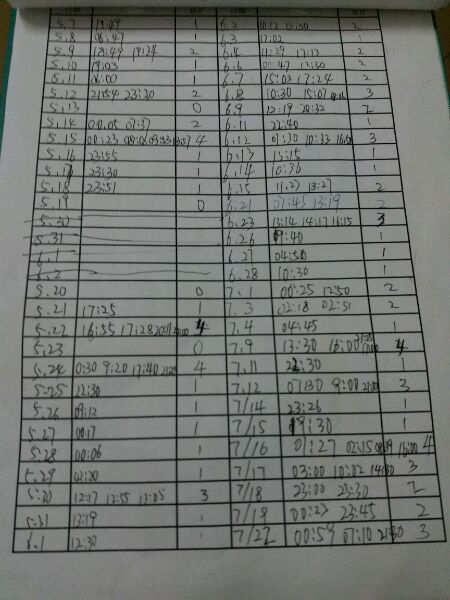 5.7 19:49 1 6.2 10:12 15:30 2
5.8 06:47 1 6.3 17:02 1
5.9 18:49 19:34 2 6.4 11:29 17:13 2
5.10 19:03 1 6.6 00:47 12:30 2
5.11 06:00 1 6.7 15:03 17:24 2
5.12 21:54 23:30 2 6.8 10:30 15:07 3
5.13 0 6.9 12:19 20:32 2
5.14 00:05 07:37 2 6.11 22:40 1
5.15 00:23 4 6.12 07:30 10:33 3
5.16 23:55 1 6.13 15:15 1
5.17 23:30 1 6.14 10:36 1
5.18 23:51 1 6.15 11:27 13:27 2
5.19 0 6.21 07:45 13:19 2
5.30 6.23 13:14 14:17 16:15 3
5.31 6.26 09:40 1
6.1 6.27 04:50 1
6.2 6.28 10:30 1
5.20 0 7.1 00:25 12:50 2
5.21 17:25 1 7.3 02:18 02:51 2
5.22 16:55 17:28 4 7.4 04:45 1
5.23 0 7.9 13:30 16:00 4
5.24 0:30 9:20 17:40 4 7.11 1
5.25 12:30 1 7.12 07:30 9:00 21:30 3
5.26 09:12 1 7/14 23:26 1
5.27 00:17 1 7/15 19:30 1
5.28 00:06 1 7/16 01:27 02:15 16:00 4
5.29 02:30 1 7/17 03:00 10:02 14:30 3
5.30 12:17 12:55 13:05 3 7/18 23:00 23:30 2
5.31 13:19 1 7/19 00:23 23:45 2
6.1 12:30 1 7/22 00:59 07:10 21:30 3